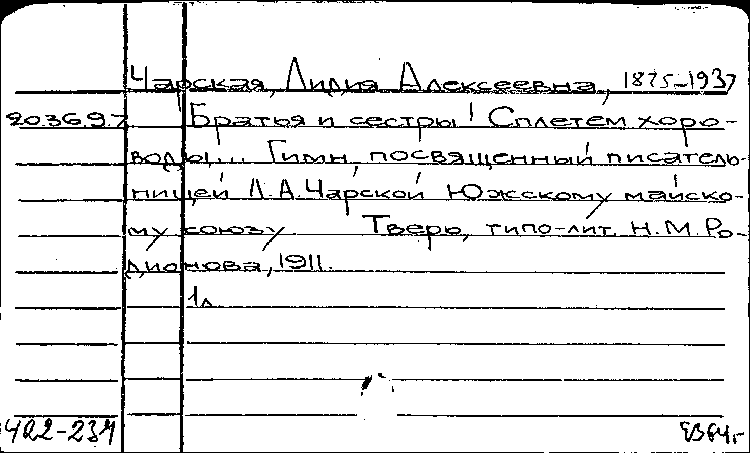 Чарская, Лидия Алексеевна, 1875-1937
203697 "Братья и сестры! Сплетем хоро-
воды!... Гимн, посвященный писатель-
ницей Л.А.Чарской Южскому майско-
му союзу Тверь, типо-лит. Н.М.Ро-
дионова, 1911.
1л